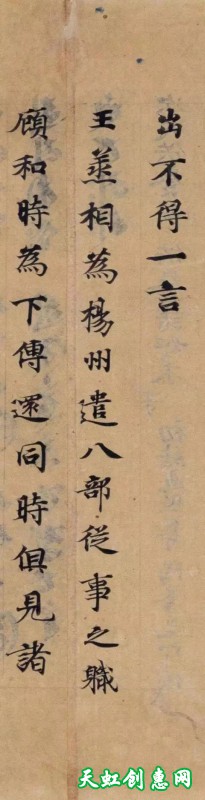 出不得一言
王丞相為楊州遣八部從事之軄
顧和時為下傳還同時俱見諸
天虹创惠网